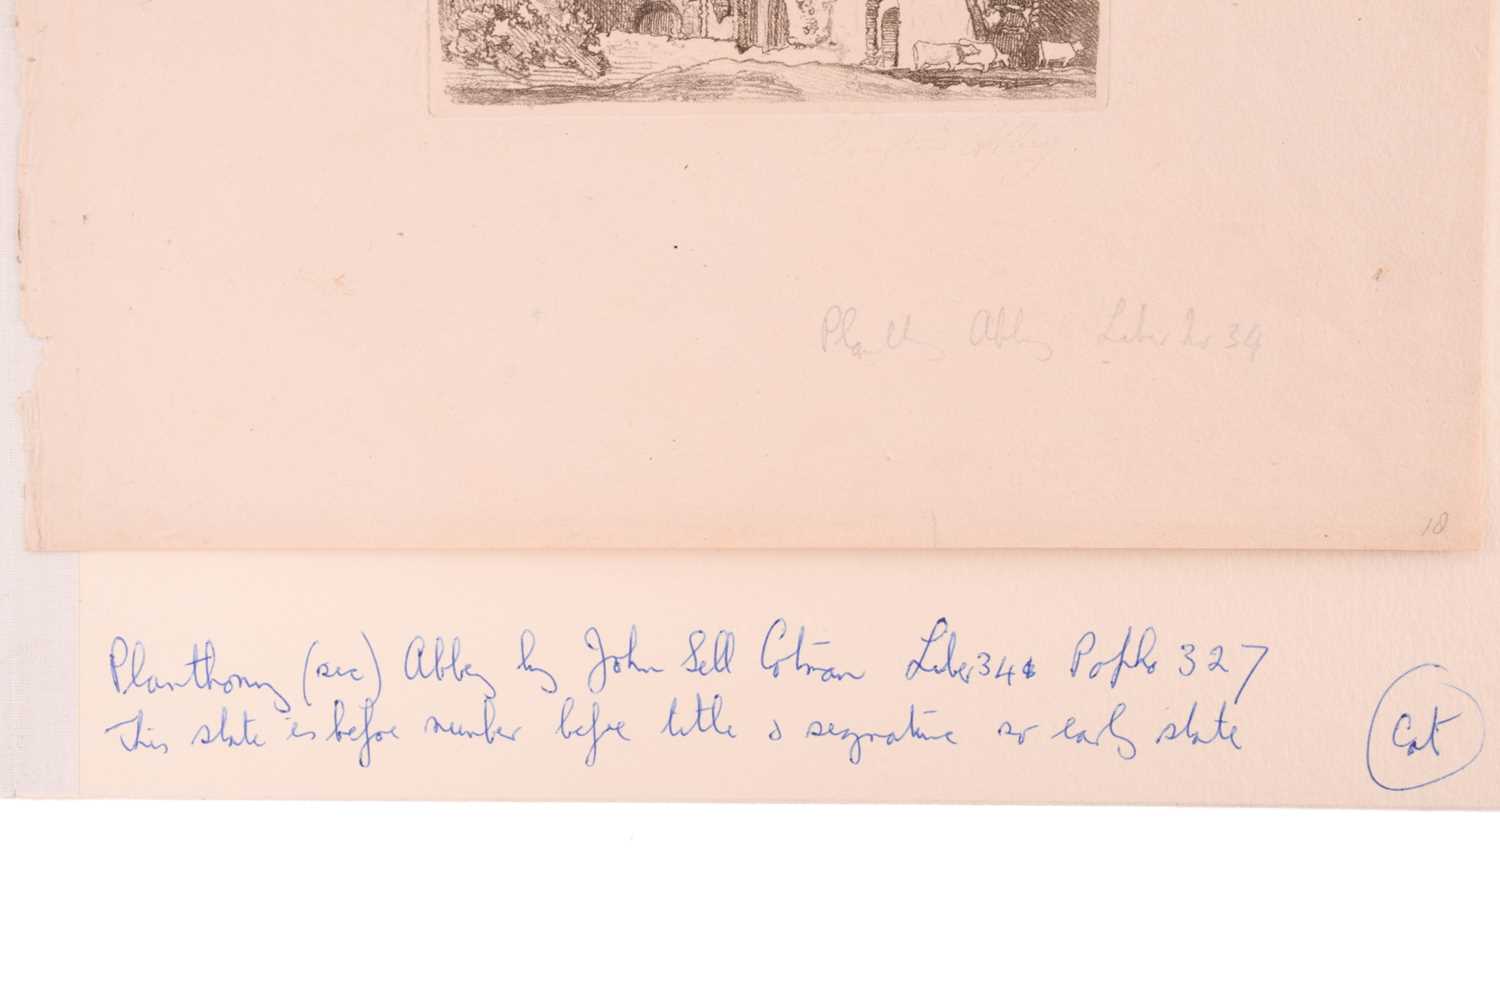 Abbey Liber Nr 34
18
Planthony (sic) Abbey by John Sell Cotman Liber 34 Popho 327
This state is before number before title & segnature so early state
Cot